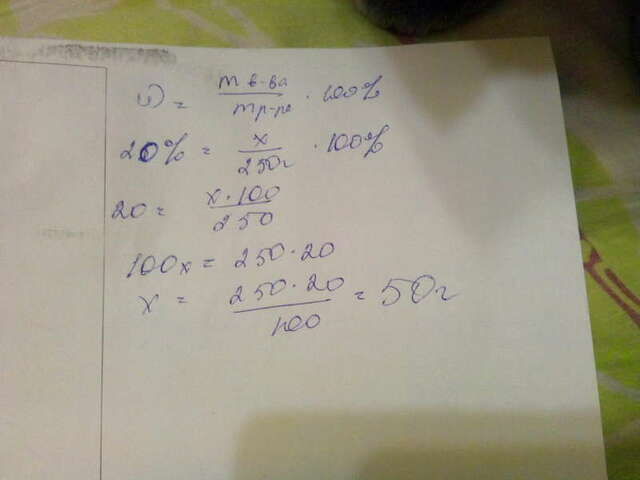 ω = m в-ва / m р-ра · 100%
20% = x / 250г · 100%
20 = x · 100 / 250
100x = 250 · 20
x = 250 · 20 / 100 = 50г